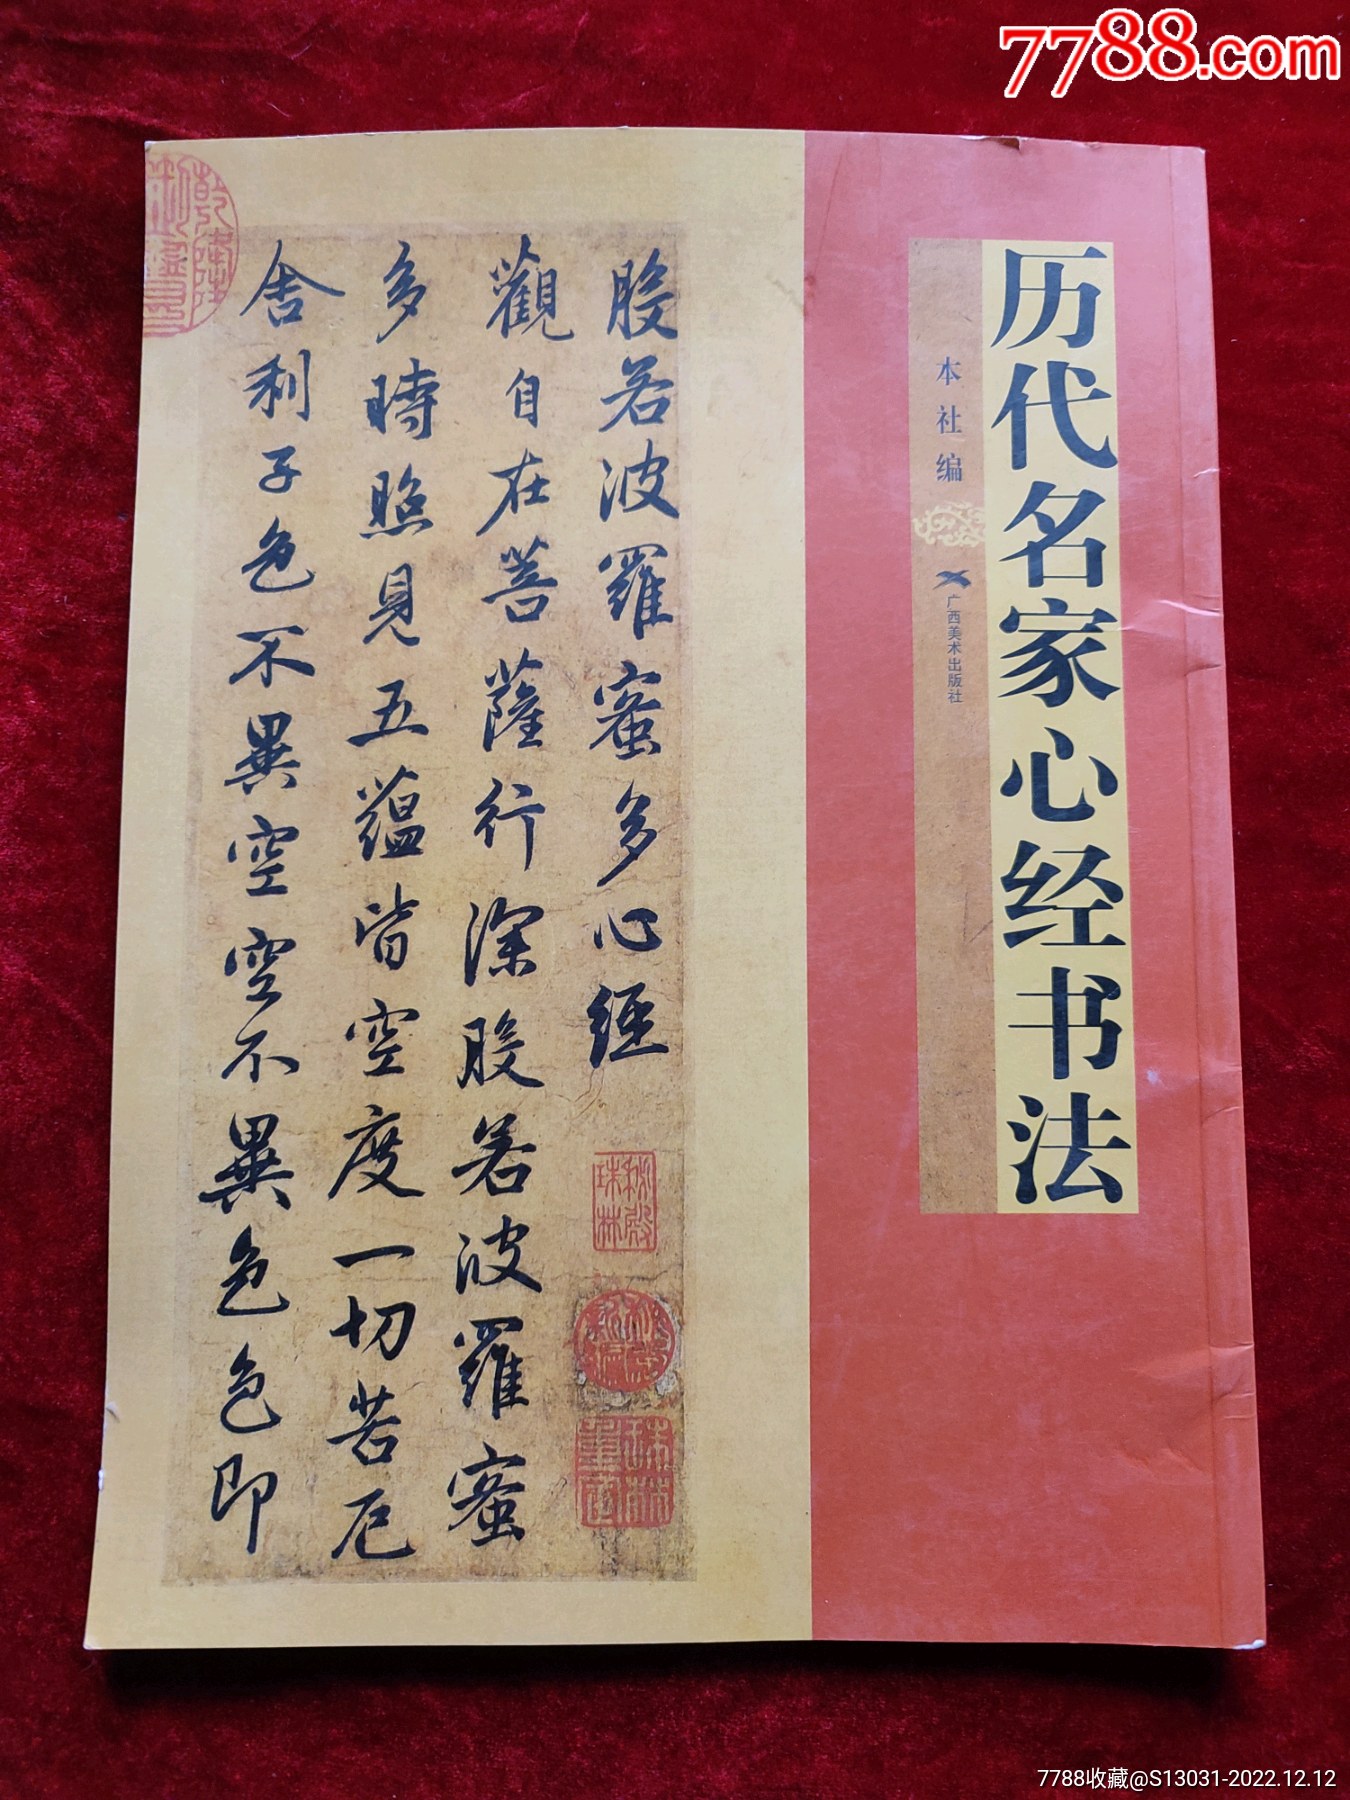 7788.com
历代名家心经书法
本社编
广西美术出版社
般若波羅蜜多心經
觀自在菩薩行深般若波羅蜜
多時照見五蘊皆空度一切苦厄
舍利子色不異空空不異色色即
乾隆
秘殿珠林
珠林重定
7788收藏@S13031-2022.12.12